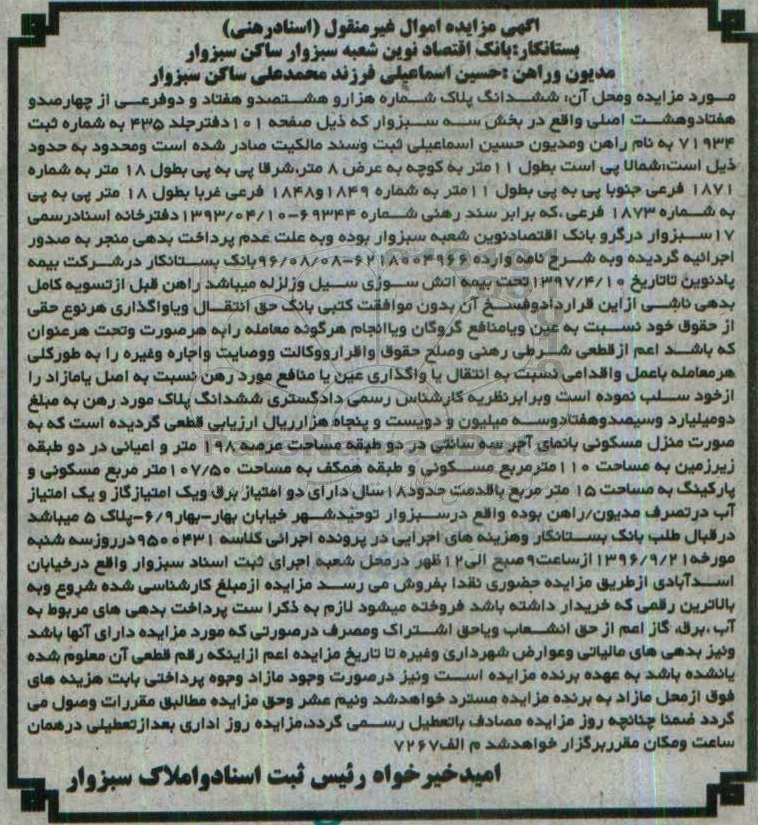 آگهی مزایده اموال غیرمنقول (اسنادرهنی)
بستانکار:بانک اقتصاد نوین شعبه سبزوار ساکن سبزوار
مدیون وراهن :حسین اسماعیلی فرزند محمدعلی ساکن سبزوار
مورد مزایده ومحل آن: ششدانگ پلاک شماره هزارو هشتصدو هفتاد و دوفرعی از چهارصدو
هفتادوهشت اصلی واقع در بخش سه سبزوار که ذیل صفحه ۱۰۱دفترجلد ۴۳۵ به شماره ثبت
۷۱۹۳۴ به نام راهن ومدیون حسین اسماعیلی ثبت وسند مالکیت صادر شده است ومحدود به حدود
ذیل است:شمالا پی است بطول ۱۱متر به کوچه به عرض ۸ متر،شرقا پی به پی بطول ۱۸ متر به شماره
۱۸۷۱ فرعی جنوبا پی به پی بطول ۱۱متر به شماره ۱۸۴۹و۱۸۴۸ فرعی غربا بطول ۱۸ متر پی به پی
به شماره ۱۸۷۳ فرعی ،که برابر سند رهنی شماره ۶۹۳۴۴-۱۳۹۳/۰۴/۱۰دفترخانه اسنادرسمی
۱۷سبزوار درگرو بانک اقتصادنوین شعبه سبزوار بوده وبه علت عدم پرداخت بدهی منجر به صدور
اجرائیه گردیده وبه شرح نامه وارده ۶۲۱۸۰۰۴۹۶۶-۹۶/۰۸/۰۸بانک بستانکار درشرکت بیمه
پادنوین تاتاریخ ۱۳۹۷/۴/۱۰تحت بیمه اتش سوزی سیل وزلزله میباشد راهن قبل ازتسویه کامل
بدهی ناشی ازاین قراردادوفسخ آن بدون موافقت کتبی بانک حق انتقال ویاواگذاری هرنوع حقی
از حقوق خود نسبت به عین ویامنافع گروگان ویاانجام هرگونه معامله رابه هرصورت وتحت هرعنوان
که باشد اعم ازقطعی شرطی رهنی وصلح حقوق واقراروو‌کالت ووصایت واجاره وغیره را به طورکلی
هرمعامله باعمل واقداعی نسبت به انتقال یا واگذاری عین یا منافع مورد رهن نسبت به اصل یامازاد را
ازخود سلب نموده است وبرابرنظریه کارشناس رسمی دادگستری ششدانگ پلاک مورد رهن به مبلغ
دومیلیارد وسیصدوهفتادوسه میلیون و دویست و پنجاه هزارریال ارزیابی قطعی گردیده است که به
صورت منزل مسکونی بانمای آجر سه سانتی در دو طبقه مساحت عرصه ۱۹۸ متر و اعیانی در دو طبقه
زیرزمین به مساحت ۱۱۰مترمربع مسکونی و طبقه همکف به مساحت ۱۰۷/۵۰متر مربع مسکونی و
پارکینگ به مساحت ۱۵ متر مربع باقدمت حدود۱۸سال دارای دو امتیاز برق ویک امتیازگاز و یک امتیاز
آب درتصرف مدیون/راهن بوده واقع درسبزوار توحیدشهر خیابان بهار-بهار۶/۹-پلاک ۵ میباشد
درقبال طلب بانک بستانکار وهزینه های اجرایی در پرونده اجرائی کلاسه ۹۵۰۰۴۳۱درروزسه شنبه
مورخه۱۳۹۶/۹/۲۱ ازساعت۹صبح الی۱۲ظهر درمحل شعبه اجرای ثبت اسناد سبزوار واقع درخیابان
اسدآبادی ازطریق مزایده حضوری نقدا بفروش می رسد مزایده ازمبلغ کارشناسی شده شروع وبه
بالاترین رقمی که خریدار داشته باشد فروخته میشود لازم به ذکرا ست پرداخت بدهی های مربوط به
آب ،برق، گاز اعم از حق انشعاب ویاحق اشتراک ومصرف درصورتی که مورد مزایده دارای آنها باشد
ونیز بدهی های مالیاتی وعوارض شهرداری وغیره تا تاریخ مزایده اعم ازاینکه رقم قطعی آن معلوم شده
یانشده باشد به عهده برنده مزایده است ونیز درصورت وجود مازاد وجوه پرداختی بابت هزینه های
فوق ازمحل مازاد به برنده مزایده مسترد خواهدشد ونیم عشر وحق مزایده مطالبق مقررات وصول می
گردد ضمنا چنانچه روز مزایده مصادف باتعطیل رسمی گردد،مزایده روز اداری بعدازتعطیلی درهمان
ساعت ومکان مقرربرگزار خواهدشد م الف۷۲۶۷
امیدخیرخواه رئیس ثبت اسنادواملاک سبزوار